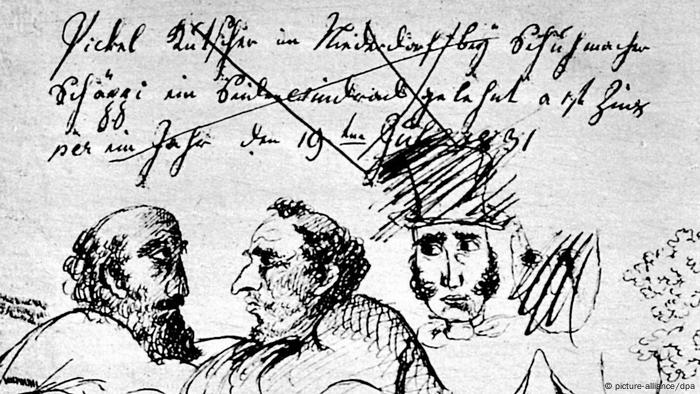 Pickel Kutscher im Niederdorf bey Schuhmacher
Schäppi ein
gelehnt a
Zins
per ein Jahr den 19 ten 1831
© picture-alliance/dpa